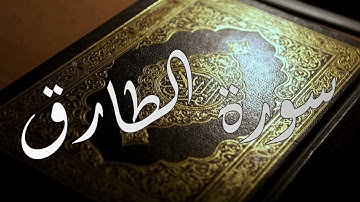 سورة الطارق